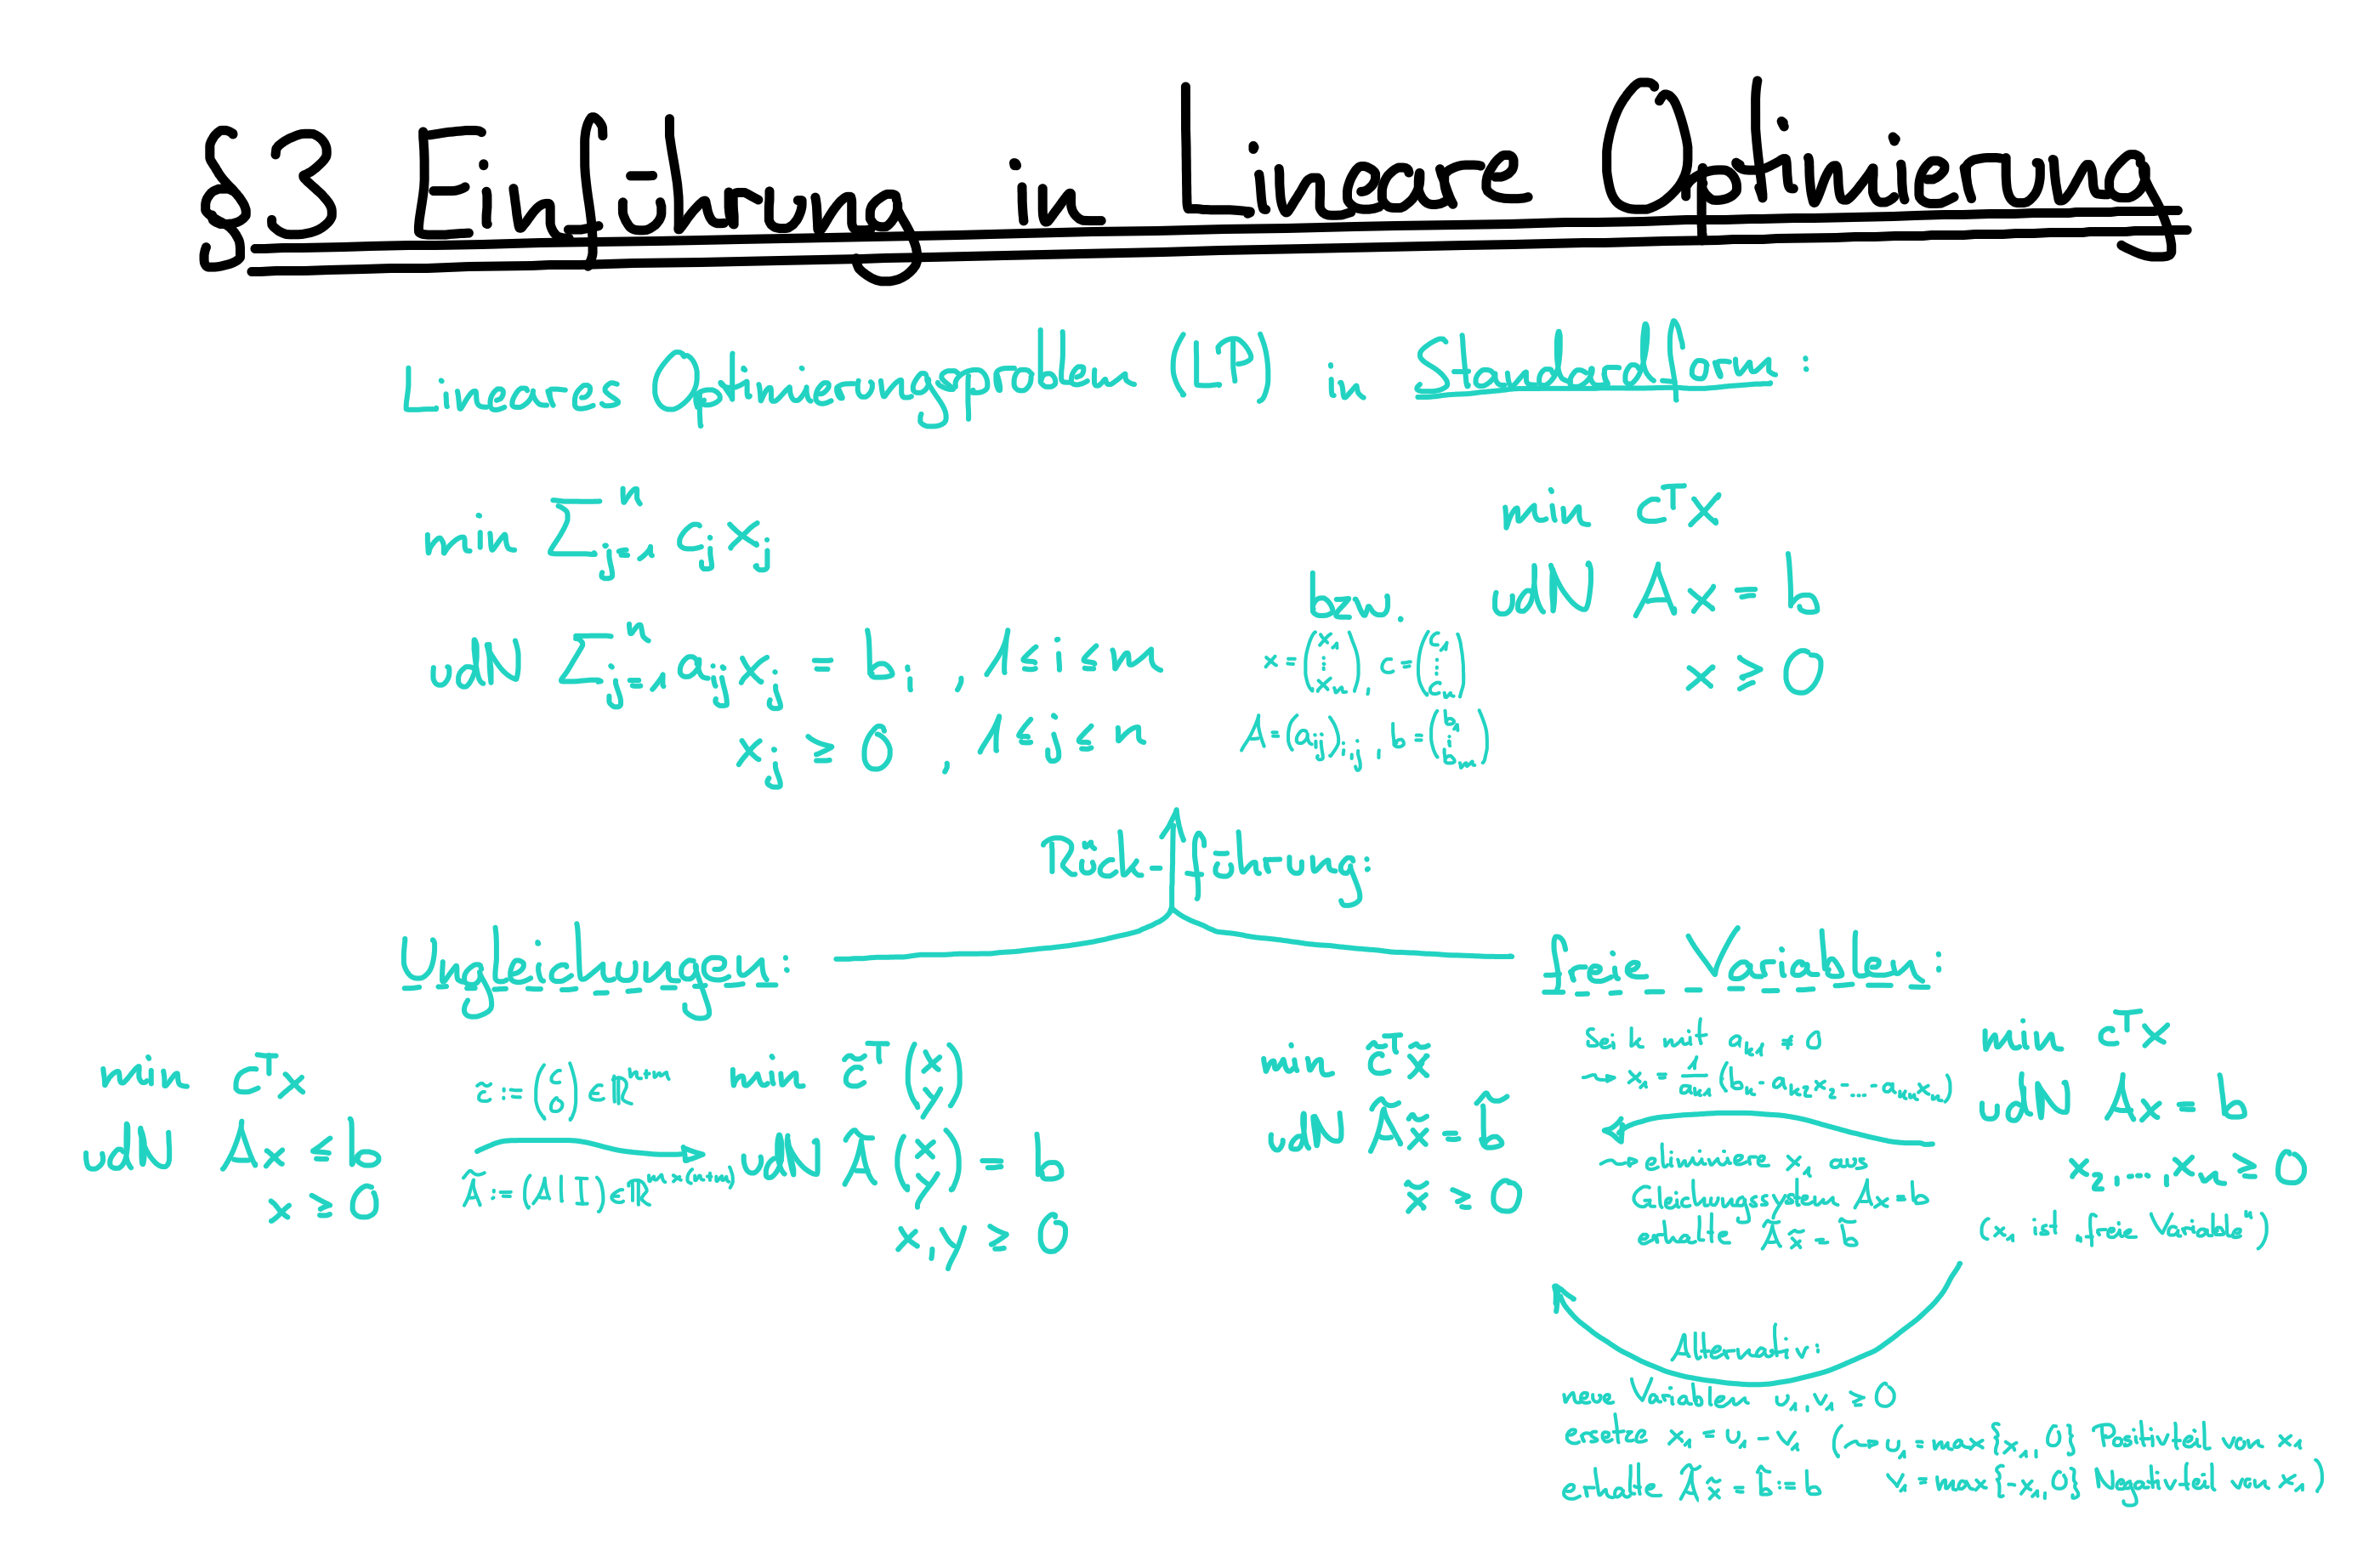 §3 Einführung in Lineare Optimierung
Lineares Optimierungsproblem (LP) in Standardform:
min ∑_{j=1}^n c_j x_j
udN ∑_{j=1}^n a_{ij} x_j = b_i , 1 ≤ i ≤ m
x_j ≥ 0 , 1 ≤ j ≤ n
bzw.
x = (x_1 ⋮ x_n), c = (c_1 ⋮ c_n)
A = (a_{ij})_{i,j}, b = (b_1 ⋮ b_m)
min c^T x
udN Ax = b
x ≥ 0
Rück-führung:
Ungleichungen:
min c^T x
udN Ax ≤ b
x ≥ 0
c̃ := (c 0) ∈ ℝ^{n+m}
Ã := (A | I) ∈ ℝ^{m×(n+m)}
min c̃^T (x y)
udN Ã (x y) = b
x, y ≥ 0
freie Variablen:
min c̃^T x̃
udN Ã x̃ = b̃
x̃ ≥ 0
Sei k mit a_{k1} ≠ 0
→ x_1 = 1/a_{k1} (b_k - a_{k2} x_2 - ... - a_{kn} x_n)
→ eliminiere x_1 aus
Gleichungssystem Ax = b
erhalte Ã x̃ = b̃
min c^T x
udN Ax = b
x_2, ..., x_n ≥ 0
(x_1 ist „freie Variable")
Alternativ:
neue Variablen u_1, v_1 ≥ 0
ersetze x_1 = u_1 - v_1 (→ u_1 = max{x_1, 0} Positivteil von x_1
erhalte Ã x̃ = b̃ := b v_1 = max{-x_1, 0} Negativteil von x_1)